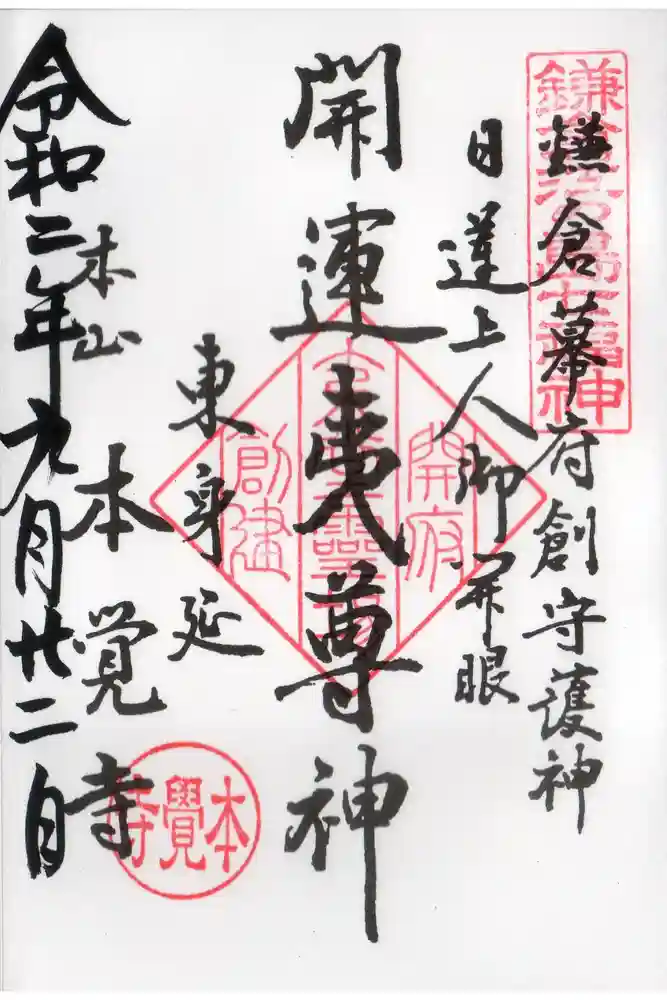 鎌倉幕府創守護神
鎌倉江の島七福神
日蓮上人御開眼
開運夷尊神
開府
創建
東身延
本山
本覚寺
本覺寺
令和二年九月廿二日